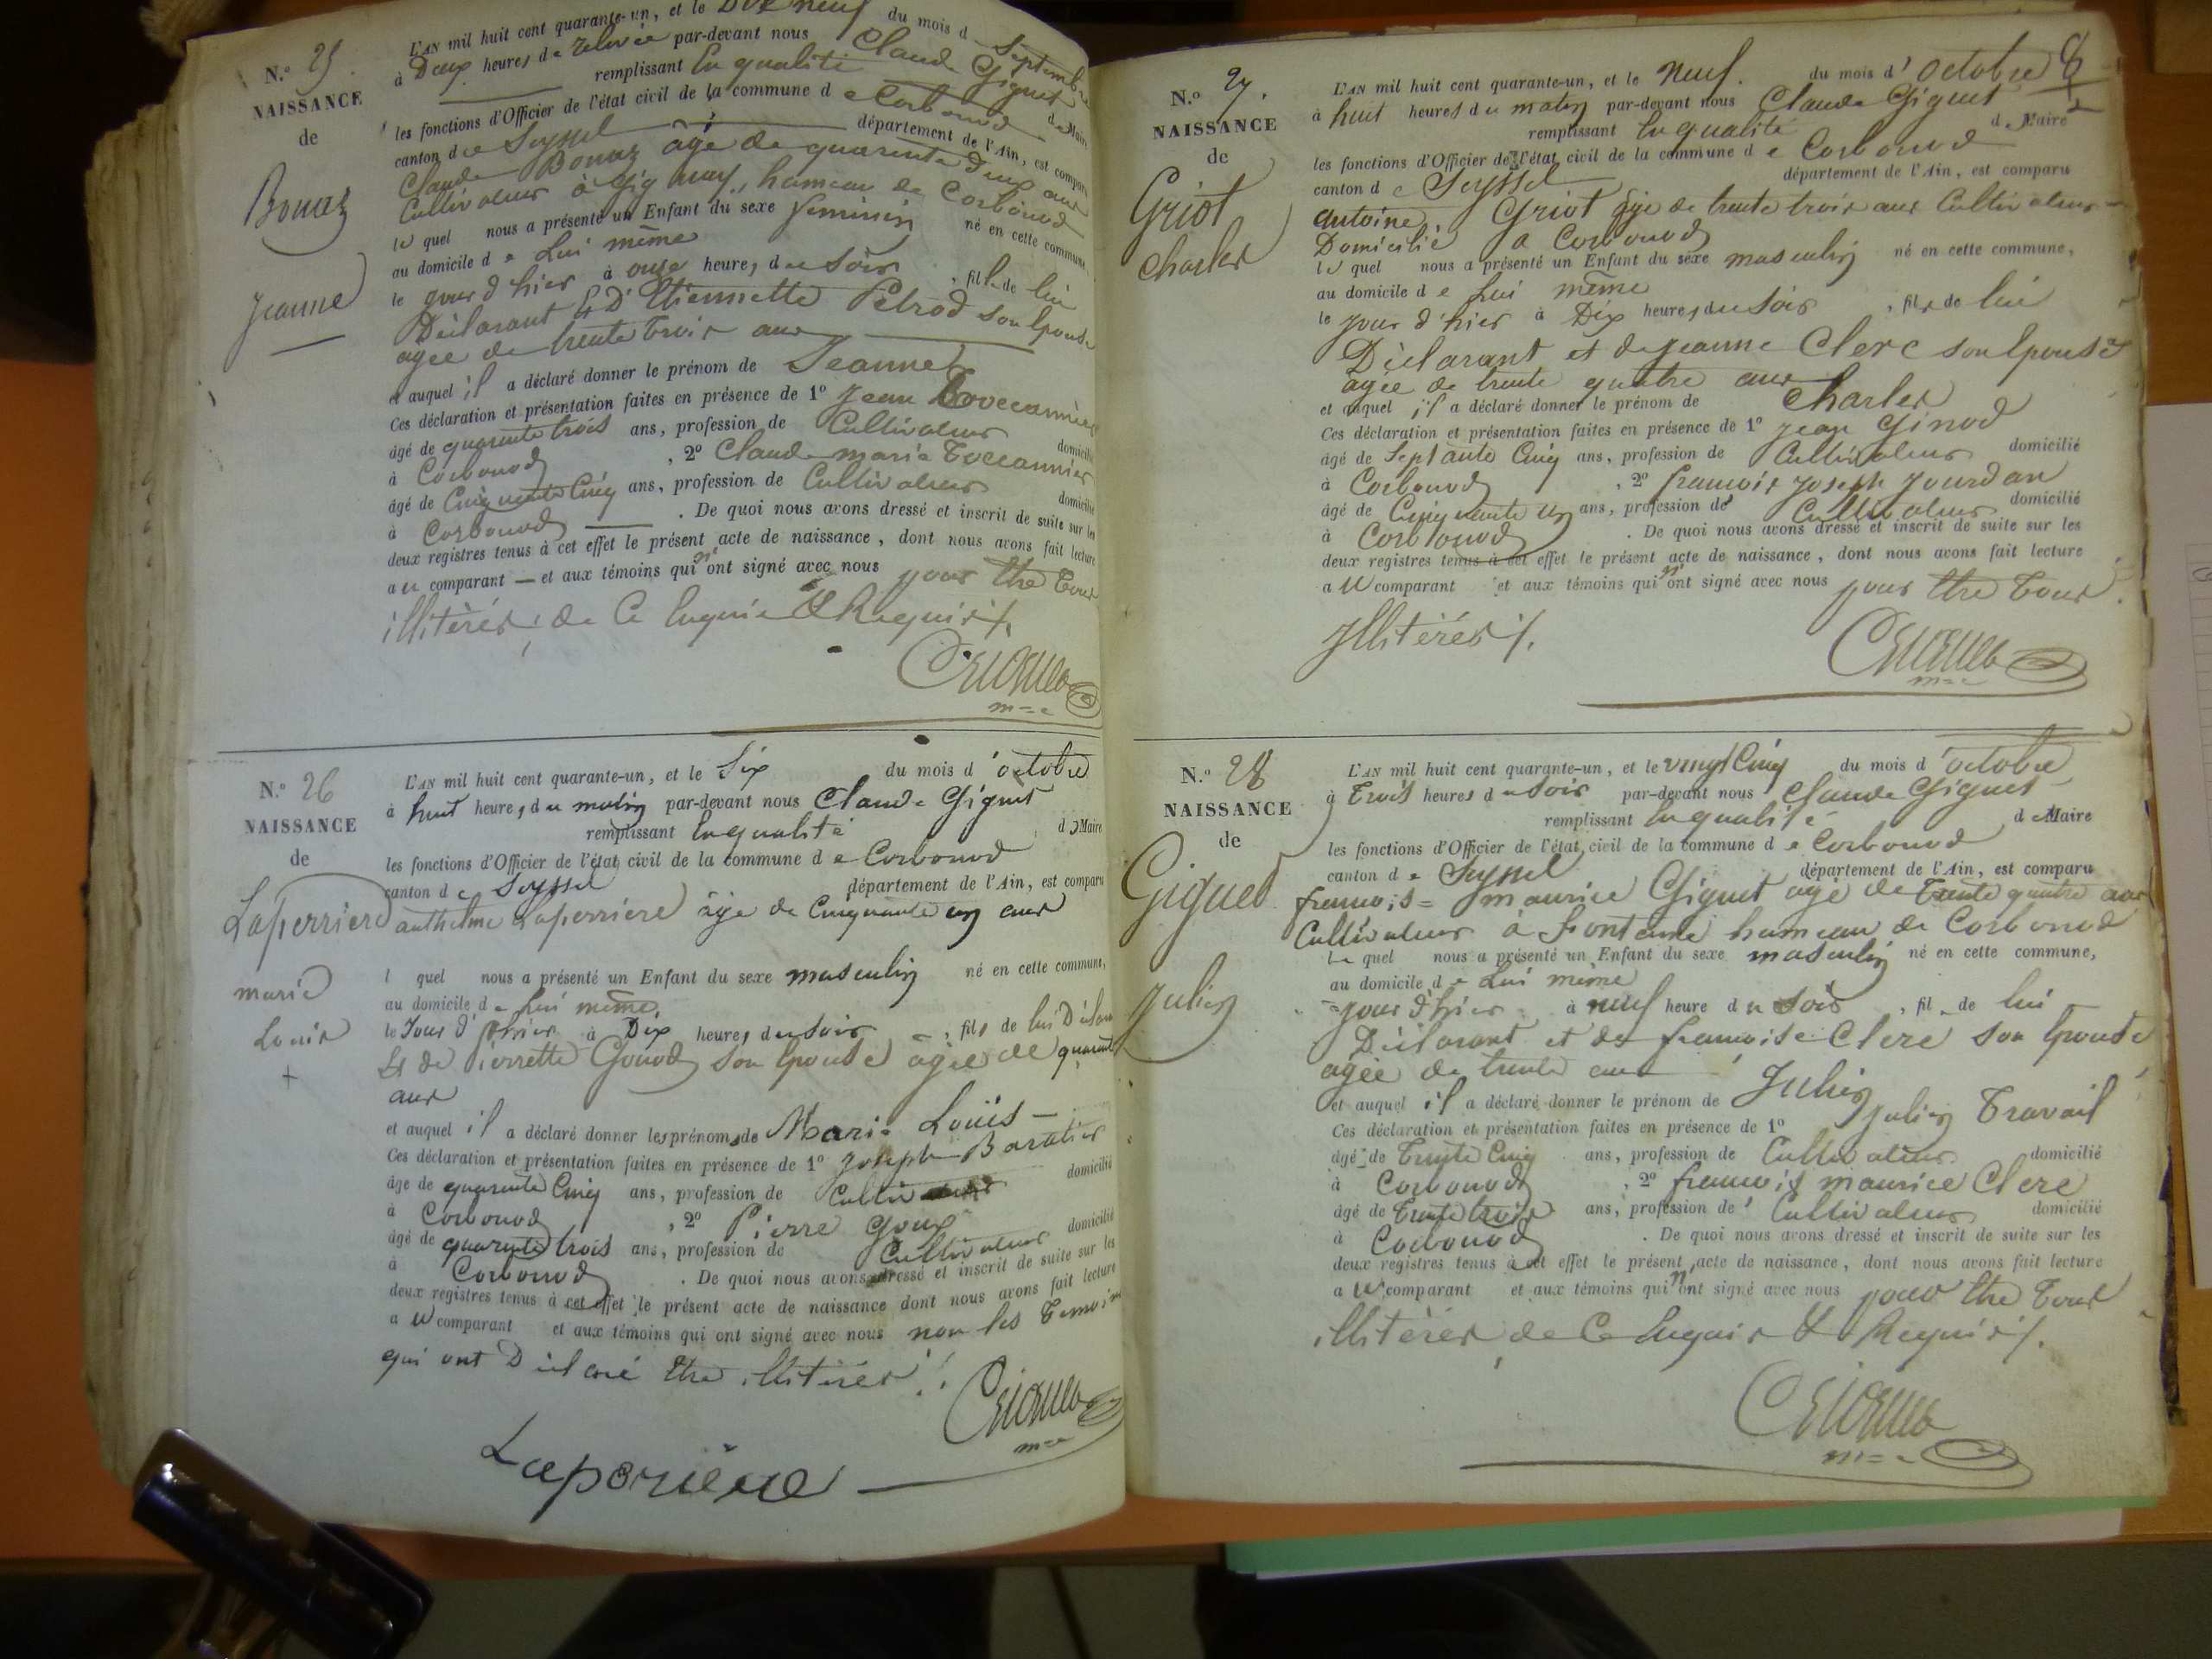 N.° 25
NAISSANCE
de
Bonaz
Jeanne
L'AN mil huit cent quarante-un, et le Dix neuf du mois d Septembre
à Deux heures de relevée par-devant nous Claude Giguet
remplissant En qualité de Maire
les fonctions d'Officier de l'état civil de la commune de Corbonod
canton de Seyssel département de l'Ain, est comparu
Claude Bonaz âgé de quarente Deux ans
Cultivateur à Gignay, hameau de Corbonod
le quel nous a présenté un Enfant du sexe feminin né en cette commune
au domicile de Lui même
le jour d'hier à onze heures du Soir, fille de lui
Déclarant & D'Etiennette Pelrod son Epouse
agée de trente trois ans
et auquel il a déclaré donner le prénom de Jeanne
Ces déclaration et présentation faites en présence de 1° Jean
âgé de quarente trois ans, profession de Cultivateur domicilié
à Corbonod, 2° Claude marie Toccannier
âgé de Cinquente Cinq ans, profession de Cultivateur domicilié
à Corbonod. De quoi nous avons dressé et inscrit de suite sur les
deux registres tenus à cet effet le présent acte de naissance, dont nous avons fait lecture
au comparant — et aux témoins qui n'ont signé avec nous pour Etre tous
illitérés, de Ce Enquis & Requis ./.
m=e
N.° 26
NAISSANCE
de
Laperriere
marie
Louis
+
L'AN mil huit cent quarante-un, et le Six du mois d'octobre
à huit heures du matin par-devant nous Claude Giguet
remplissant En qualité de Maire
les fonctions d'Officier de l'état civil de la commune de Corbonod
canton de Seyssel département de l'Ain, est comparu
anthelme Laperriere âge de Cinquante un ans
l quel nous a présenté un Enfant du sexe masculin né en cette commune,
au domicile de Lui même
le Jour d'hier à Dix heures du soir, fils de lui
Et de Pierrette Gonod son Epouse agée de quarente
ans
et auquel il a déclaré donner les prénoms de Marie Louis —
Ces déclaration et présentation faites en présence de 1° Joseph Baratier
âge de quarente Cinq ans, profession de Cultivateur domicilié
à Corbonod, 2° Pierre Goux
âgé de quarente trois ans, profession de Cultivateur domicilié
à Corbonod. De quoi nous avons dressé et inscrit de suite sur les
deux registres tenus à cet effet le présent acte de naissance dont nous avons fait lecture
au comparant et aux témoins qui ont signé avec nous non les Temoins
qui ont Déclaré Etre illitérés
m=e
Laperiere
8
N.° 27.
NAISSANCE
de
Griot
Charles
L'AN mil huit cent quarante-un, et le neuf. du mois d'octobre
à huit heures du matin par-devant nous Claude Giguet
remplissant En qualité de Maire
les fonctions d'Officier de l'état civil de la commune de Corbonod
canton de Seyssel département de l'Ain, est comparu
antoine, Griot âge de trente trois ans Cultivateur
Domicilié a Corbonod
le quel nous a présenté un Enfant du sexe masculin né en cette commune,
au domicile de Lui même
le jour d'hier à Dix heures du soir, fils de lui
Déclarant et de jeanne Clerc son Epouse
agée de trente quatre ans
et auquel il a déclaré donner le prénom de Charles
Ces déclaration et présentation faites en présence de 1° Jean Ginod
âgé de Septante Cinq ans, profession de Cultivateur domicilié
à Corbonod, 2° francois Joseph Jourdan
âgé de Cinquante un ans, profession de Cultivateur domicilié
à Corbonod. De quoi nous avons dressé et inscrit de suite sur les
deux registres tenus à cet effet le présent acte de naissance, dont nous avons fait lecture
au comparant et aux témoins qui n'ont signé avec nous pour Etre tous
Illitérés ./.
m=e
N.° 28
NAISSANCE
de
Giguet
Julien
L'AN mil huit cent quarante-un, et le vingt Cinq du mois d'octobre
à trois heures du soir par-devant nous Claude Giguet
remplissant En qualité de Maire
les fonctions d'Officier de l'état civil de la commune de Corbonod
canton de Seyssel département de l'Ain, est comparu
francois = maurice Giguet agé de trente quatre ans
Cultivateur à hameau de Corbonod
Le quel nous a présenté un Enfant du sexe masculin né en cette commune,
au domicile de Lui même
jour d'hier à neuf heure du Soir, fil de lui
Déclarant et de francoise Clerc son Epouse
agée de trente ans
et auquel il a déclaré donner le prénom de Julien
Ces déclaration et présentation faites en présence de 1° julien Travail
âgé de Trente Cinq ans, profession de Cultivateur domicilié
à Corbonod, 2° francois maurice Clerc
âgé de Trente trois ans, profession de Cultivateur domicilié
à Corbonod. De quoi nous avons dressé et inscrit de suite sur les
deux registres tenus à cet effet le présent acte de naissance, dont nous avons fait lecture
au comparant et aux témoins qui n'ont signé avec nous pour Etre tous
illitérés de Ce Enquis & Requis ./.
m=e